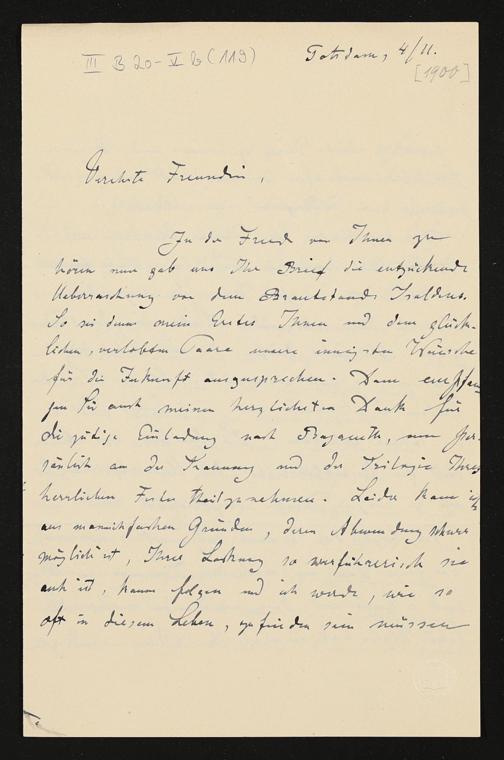 III B 20-V b (119)
Potsdam, 4/11.
[1900]
Verehrte Freundin,
In der Freude von Ihnen zu
hören nun gab uns Ihr Brief die entzückende
Ueberraschung von dem Brautstande Isoldens.
So sei denn mein Erstes Ihnen und dem glück-
lichen, verlobten Paare unsere innigsten Wünsche
für die Zukunft auszusprechen. Dann empfan-
gen Sie auch meinen herzlichsten Dank für
die gütige Einladung nach Bayreuth, um per-
sönlich an der Trauung und der Trilogie Ihres
herrlichen Festes theilzunehmen. Leider kann ich
aus mannichfachen Gründen, deren Abwendung schwer
möglich ist, Ihrer Lockung so verführerisch sie
auch ist, kaum folgen und ich werde, wie so
oft in diesem Leben, zufrieden sein müssen